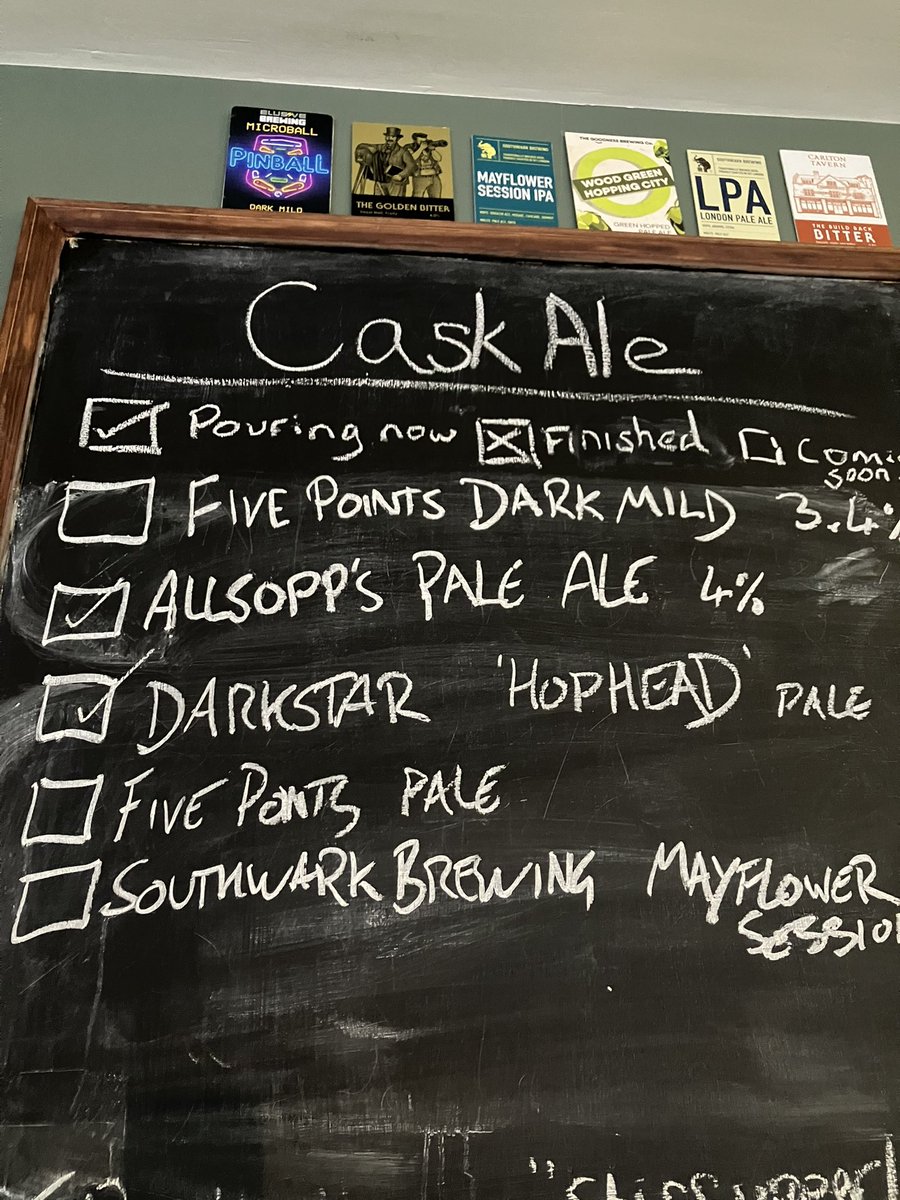 ELUSIVE
BREWING
MICROBALL
PINBALL
DARK MILD
THE GOLDEN BITTER
SOUTHWARK BREWING
MAYFLOWER
SESSION IPA
THE GOODNESS BREWING CO.
WOOD GREEN
HOPPING CITY
GREEN HOPPED
PALE ALE
SOUTHWARK BREWING
LPA
LONDON PALE ALE
CARLTON
TAVERN
THE BUILD BACK
BITTER
Cask Ale
Pouring now Finished Comi
soon
FIVE POINTS DARK MILD 3.4%
ALLSOPP'S PALE ALE 4%
DARKSTAR 'HOPHEAD' PALE
FIVE POINTS PALE
SOUTHWARK BREWING MAYFLOWER
SESSION